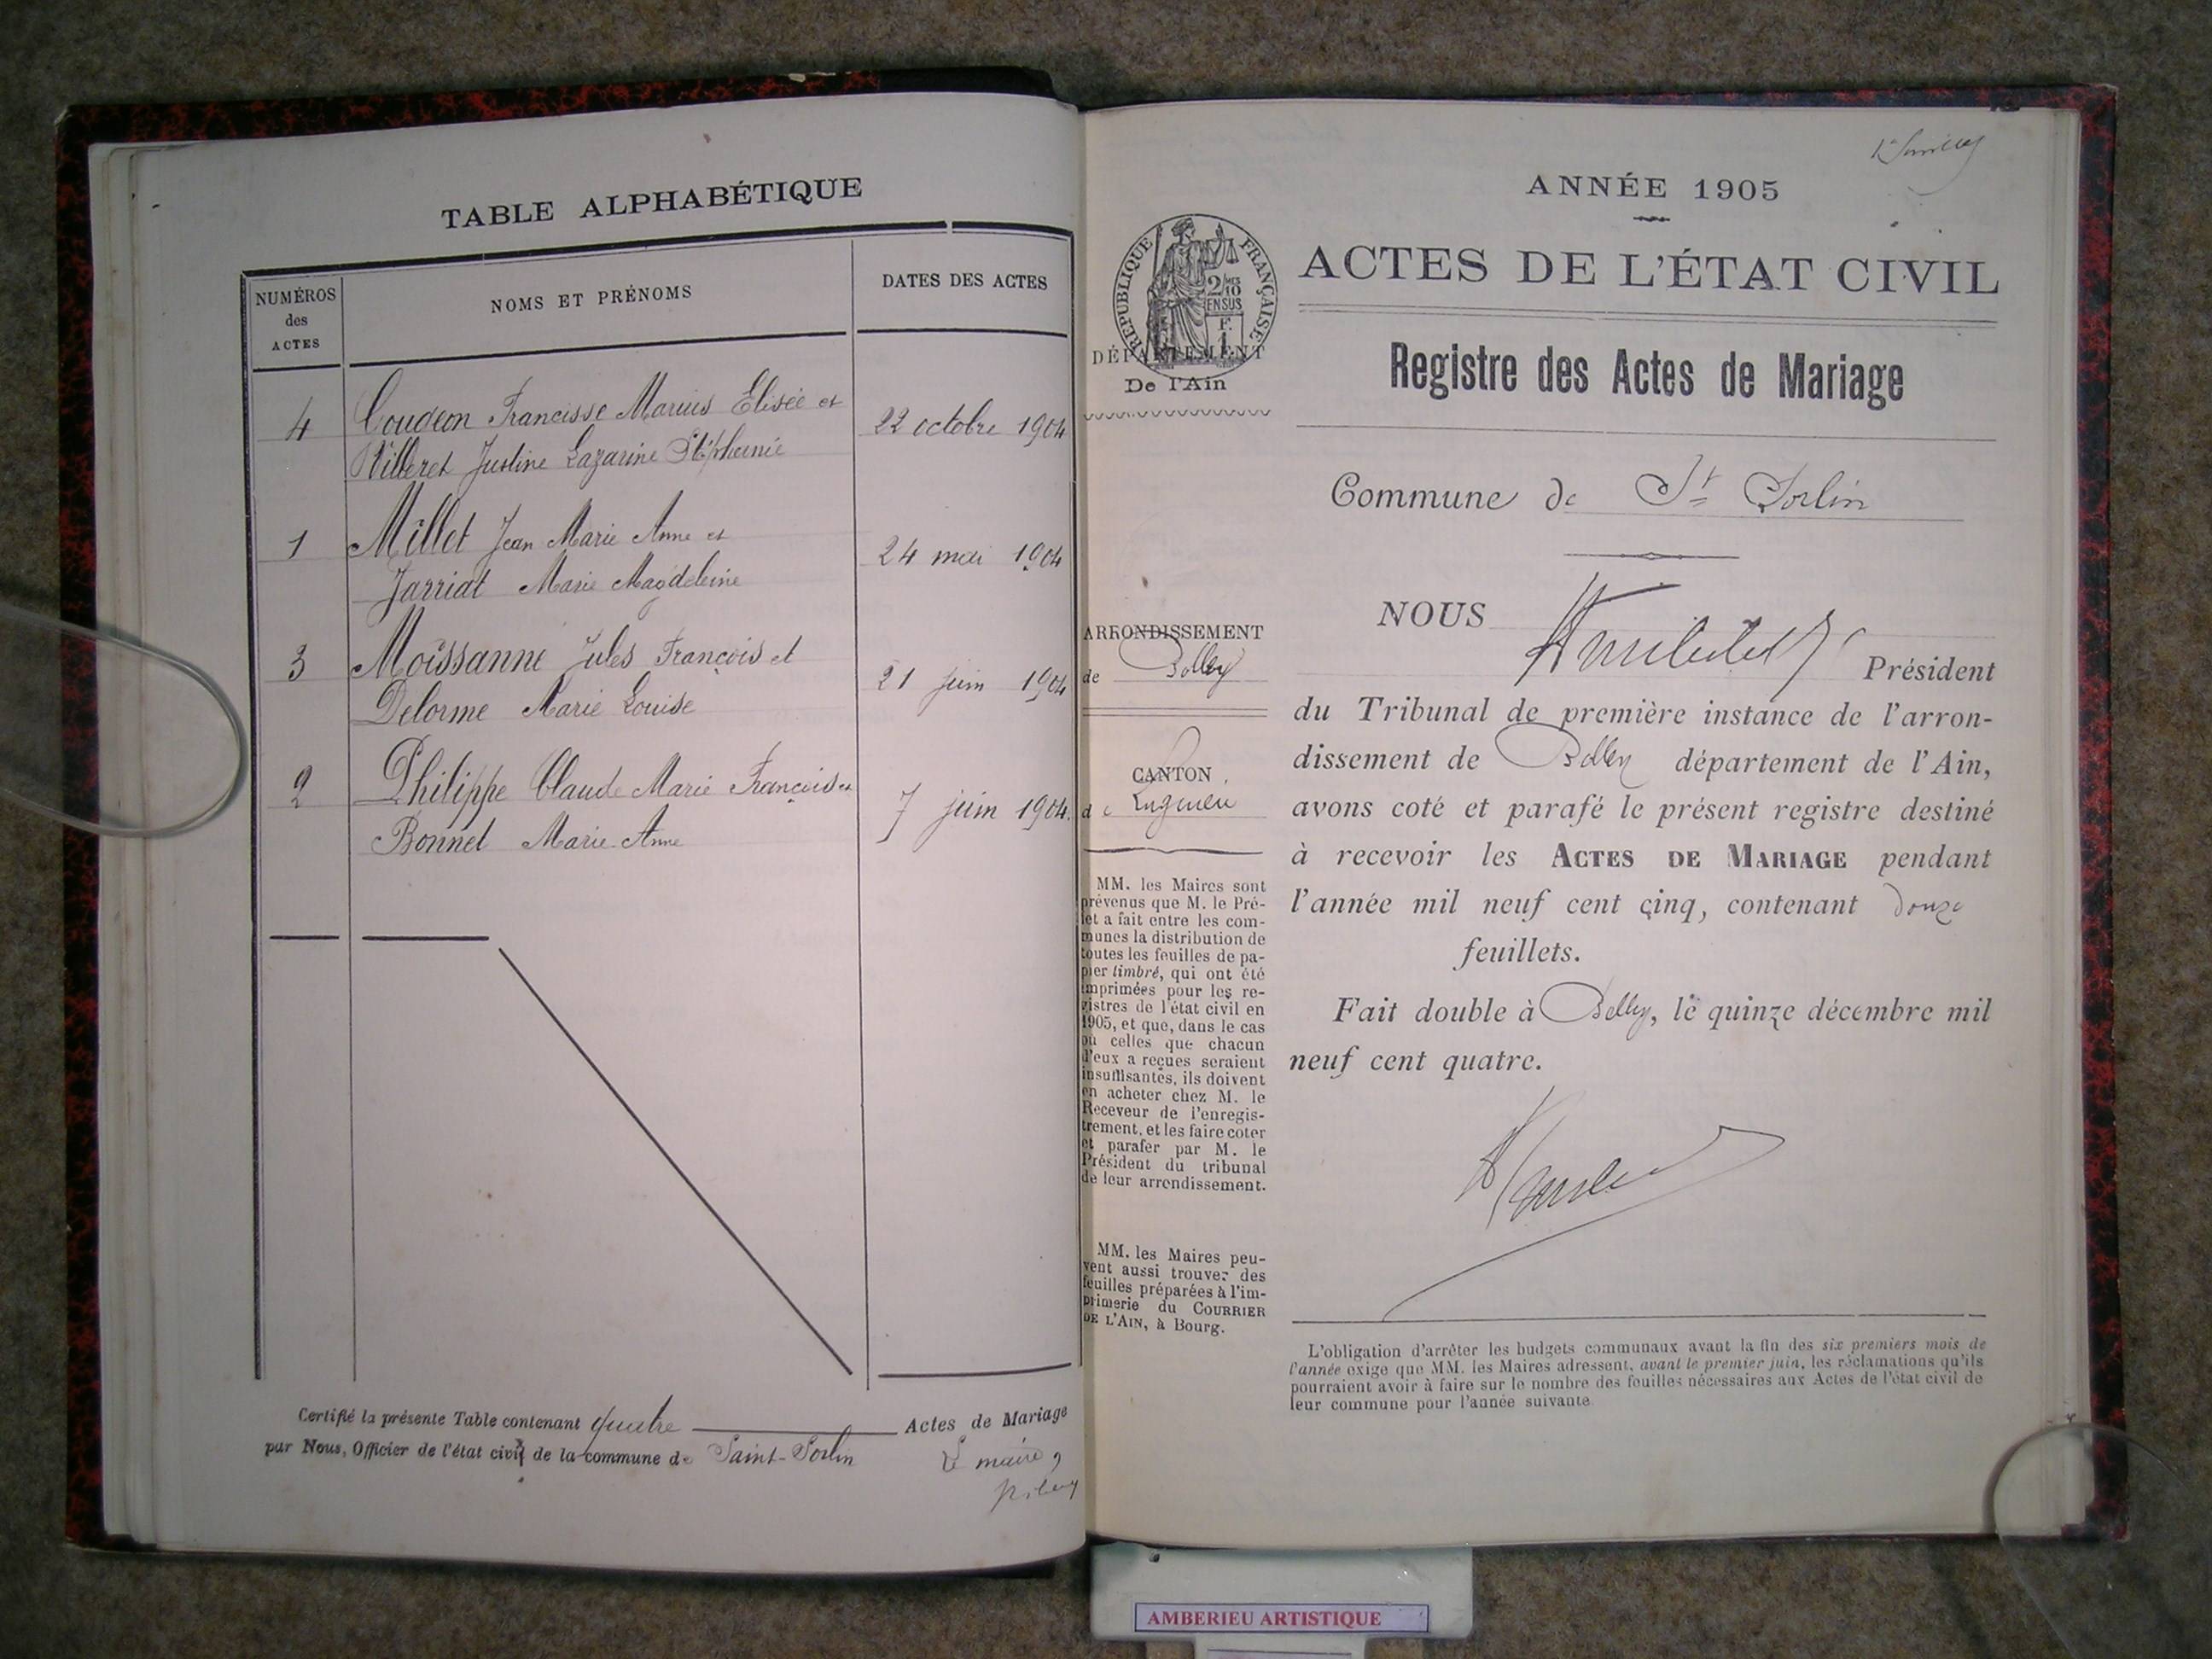 TABLE ALPHABÉTIQUE
NUMÉROS
des
ACTES
NOMS ET PRÉNOMS
DATES DES ACTES
4
Coudeon Francisse Marius Elisée et
Villeret Justine Lazarine Stéphanie
22 octobre 1904
1
Millet Jean Marie Anne et
Jarriat Marie Magdeleine
24 mai 1904
3
Moissanne Jules François et
Delorme Marie Louise
21 juin 1904
2
Philippe Claude Marie François et
Bonnet Marie-Anne
7 juin 1904.
Certifié la présente Table contenant quatre Actes de Mariage
par Nous, Officier de l'état civil de la commune de Saint-Sorlin
Le maire,
RÉPUBLIQUE FRANÇAISE
2/10
EN SUS
F.
1
DÉPARTEMENT
De l'Ain
ARRONDISSEMENT
de Belley
CANTON
de Lagnieu
MM. les Maires sont
prévenus que M. le Pré-
fet a fait entre les com-
munes la distribution de
toutes les feuilles de pa-
pier timbré, qui ont été
imprimées pour les re-
gistres de l'état civil en
1905, et que, dans le cas
où celles que chacun
d'eux a reçues seraient
insuffisantes, ils doivent
en acheter chez M. le
Receveur de l'enregis-
trement, et les faire coter
et parafer par M. le
Président du tribunal
de leur arrondissement.
MM. les Maires peu-
vent aussi trouver des
feuilles préparées à l'im-
primerie du COURRIER
DE L'AIN, à Bourg.
ANNÉE 1905
ACTES DE L'ÉTAT CIVIL
Registre des Actes de Mariage
Commune de St Sorlin
NOUS
Président
du Tribunal de première instance de l'arron-
dissement de Belley département de l'Ain,
avons coté et parafé le présent registre destiné
à recevoir les ACTES DE MARIAGE pendant
l'année mil neuf cent cinq, contenant douze
feuillets.
Fait double à Belley, le quinze décembre mil
neuf cent quatre.
L'obligation d'arrêter les budgets communaux avant la fin des six premiers mois de
l'année exige que MM. les Maires adressent, avant le premier juin, les réclamations qu'ils
pourraient avoir à faire sur le nombre des feuilles nécessaires aux Actes de l'état civil de
leur commune pour l'année suivante
AMBERIEU ARTISTIQUE